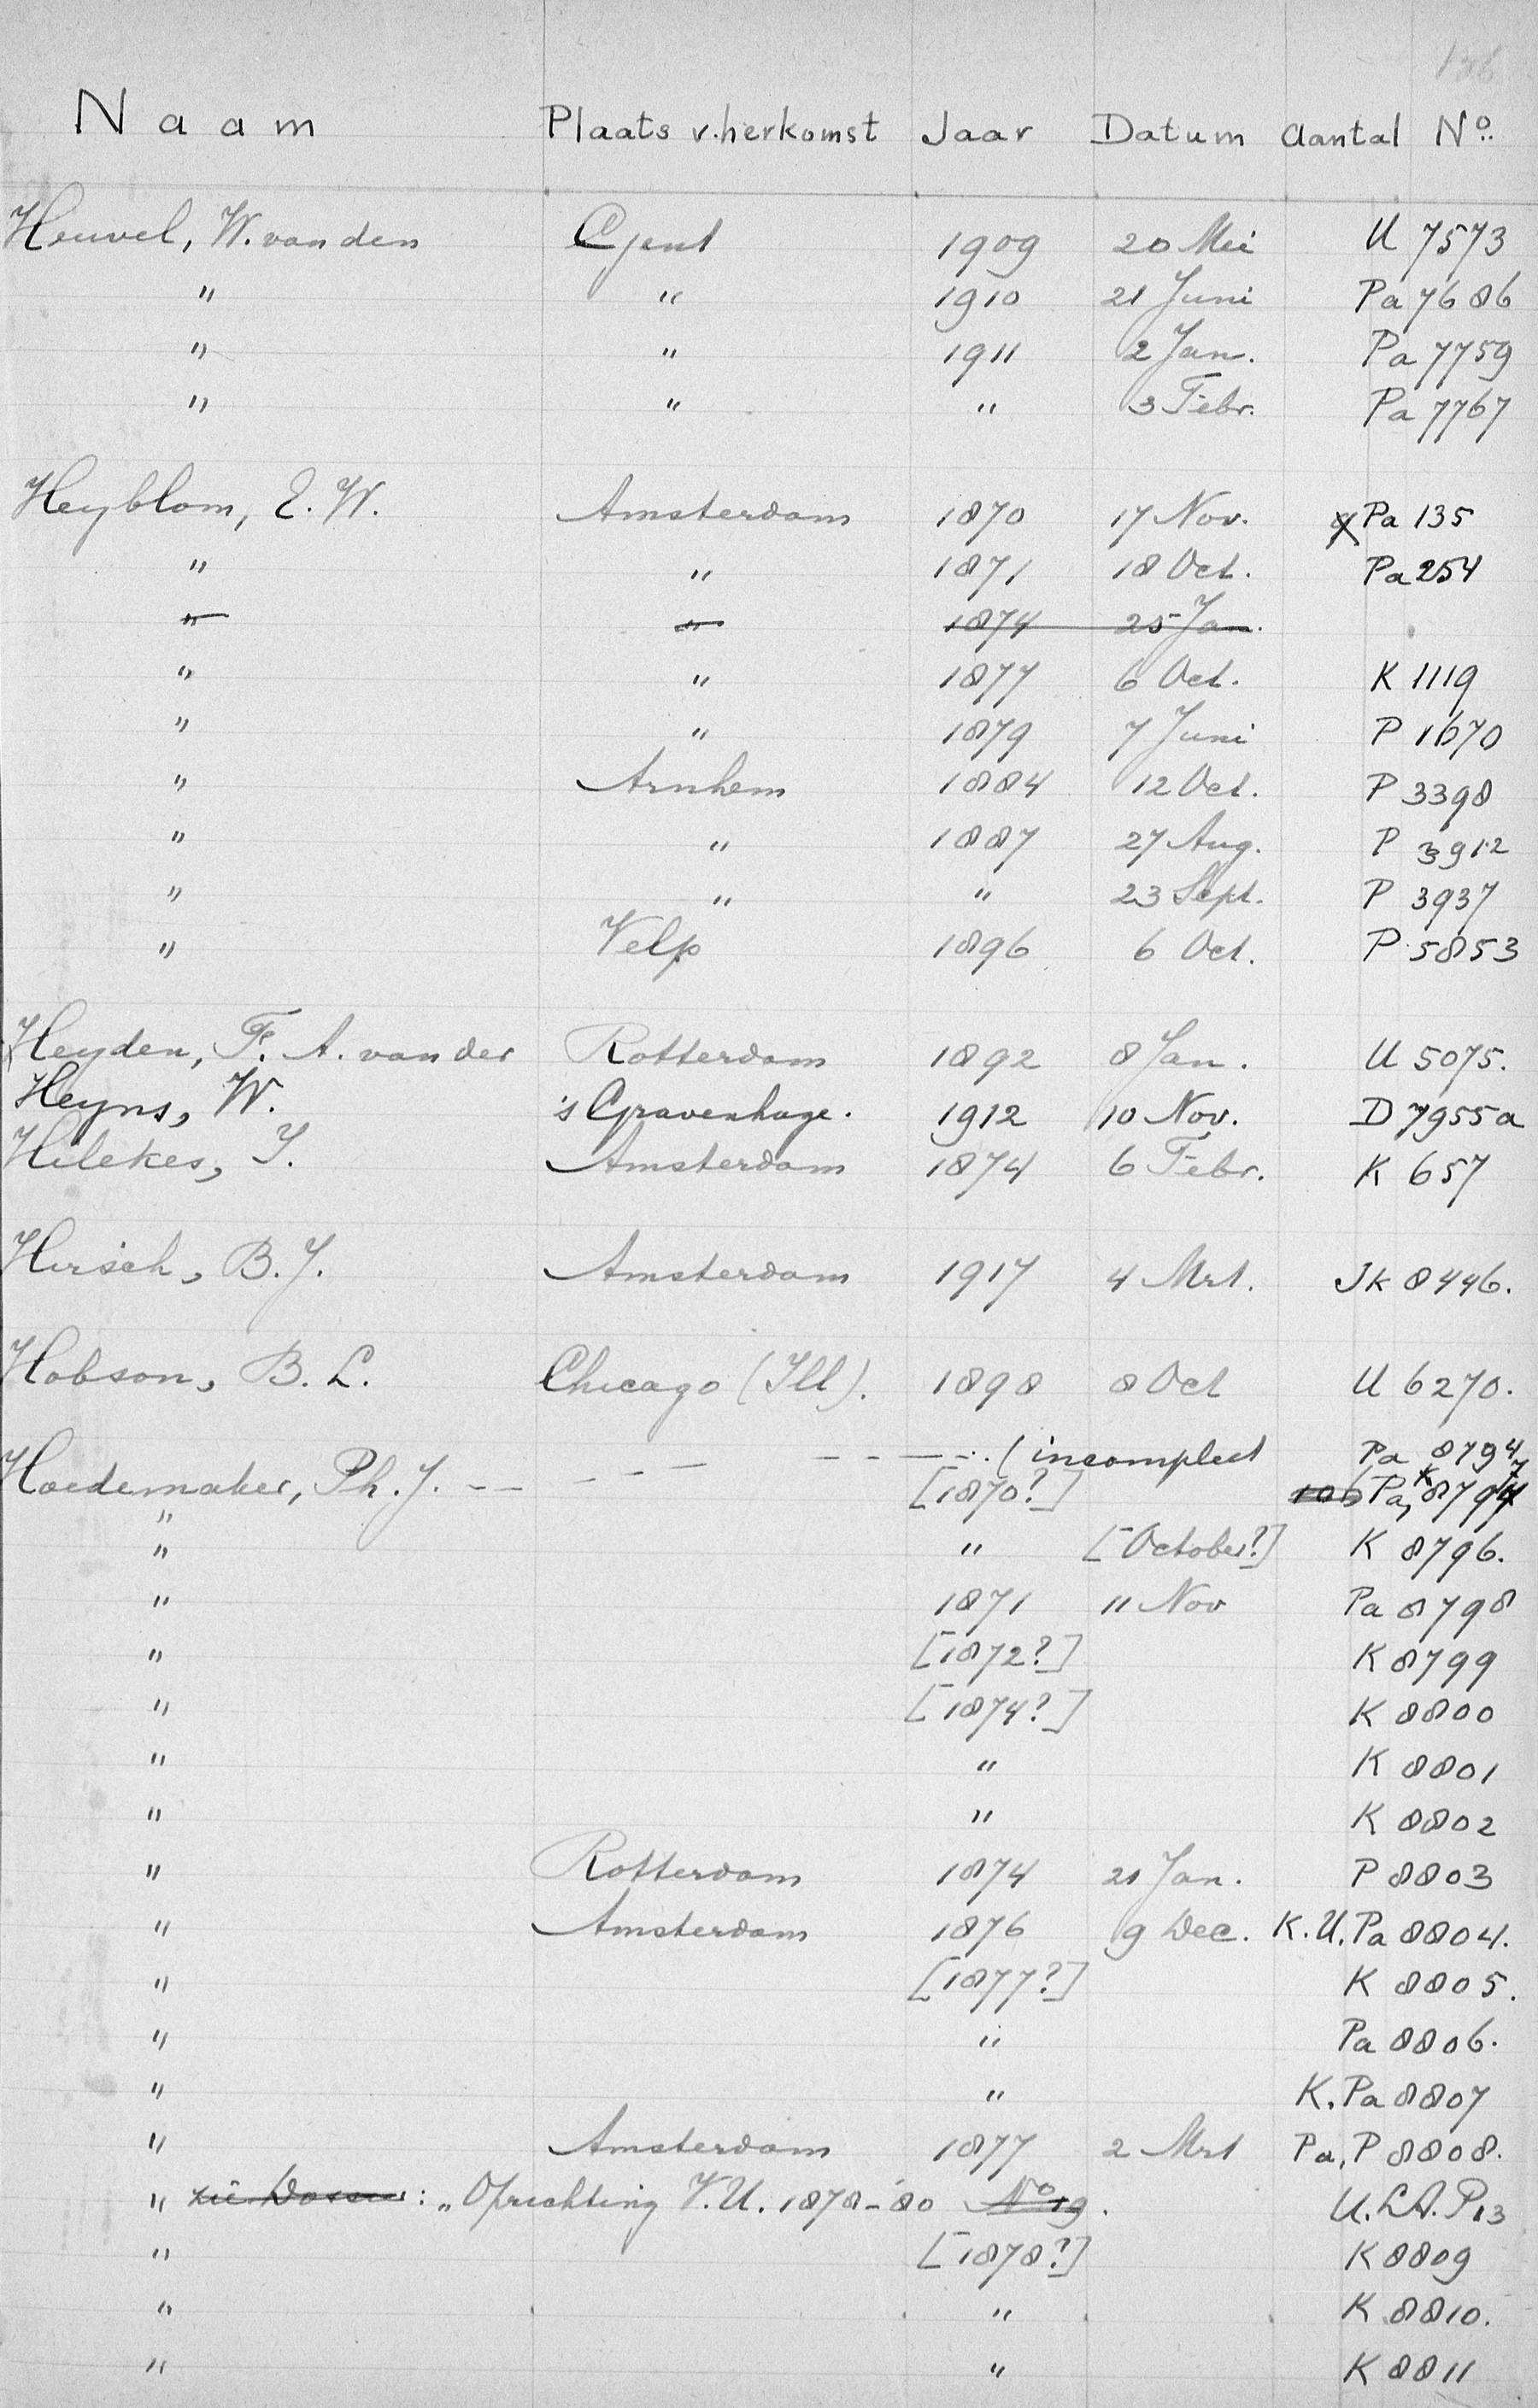 136
Naam Plaats v. herkomst Jaar Datum Aantal No.
Heuvel, W. van den Gent 1909 20 Mei U 7573
" " 1910 21 Juni Pa 7686
" " 1911 2 Jan. Pa 7759
" " " 3 Febr. Pa 7767
Heyblom, E. W. Amsterdam 1870 17 Nov. Pa 135
" " 1871 18 Oct. Pa 254
" " 1874 25 Jan.
" " 1877 6 Oct. K 1119
" " 1879 7 Juni P 1670
" Arnhem 1884 12 Oct. P 3398
" " 1887 27 Aug. P 3912
" " " 23 Sept. P 3937
" Velp 1896 6 Oct. P 5853
Heyden, F. A. van der Rotterdam 1892 8 Jan. U 5075.
Heyns, W. 's Gravenhage. 1912 10 Nov. D 7955a
Hilekes, I. Amsterdam 1874 6 Febr. K 657
Hirsch, B. J. Amsterdam 1917 4 Mrt. Jk 8446.
Hobson, B. L. Chicago (Ill). 1898 8 Oct U 6270.
Hoedemaker, Ph. J. -- --- ---- (incompleet Pa 8794
" [1870?] 106 Pa, 8797
" " [October?] K 8796.
" 1871 11 Nov Pa 8798
" [1872?] K 8799
" [1874?] K 8800
" " K 8801
" " K 8802
" Rotterdam 1874 21 Jan. P 8803
" Amsterdam 1876 9 Dec. K. U. Pa 8804.
" [1877?] K 8805.
" " Pa 8806.
" " K. Pa 8807
" Amsterdam 1877 2 Mrt Pa, P 8808.
" zie Dossier: „Oprichting V.U. 1878-'80 No 19. U. LA. P13
" [1878?] K 8809
" " K 8810.
" " K 8811